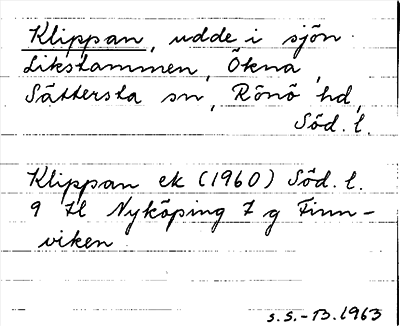 Klippan, udde i sjön
Likstammen, Ökna,
Sättersta sn, Rönö hd,
Söd. l.
Klippan ek (1960) Söd. l.
9 H Nyköping 7 g Finn-
viken
S.S.-B. 1963